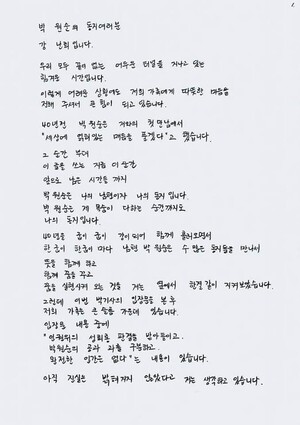 1.
박 원순의 동지여러분
강 난희입니다.
우리 모두 끝이 없는 어두운 터널을 지나고 있는
힘겨운 시간입니다.
이렇게 어려운 상황에도 저의 가족에게 따뜻한 마음을
전해 주셔서 큰 힘이 되고 있습니다.
40년전 박 원순은 저와의 첫 만남에서
"세상에 얽혀있는 매듭을 풀겠다"고 했습니다.
그 순간 부터
이 글을 쓰는 지금 이 순간
앞으로 남은 시간들 까지
박 원순은 나의 남편이자 나의 동지 입니다.
박 원순은 제 목숨이 다하는 순간까지도
나의 동지입니다.
40년을 굽이 굽이 강이되어 함께 흘러오면서
한 굽이 한굽이 마다 남편 박 원순은 수 많은 동지들을 만나서
뜻을 함께 하고
함께 꿈을 꾸고
꿈을 실현시켜 가는 것을 저는 옆에서 한결 같이 지켜보았습니다.
그런데 이번 박기사의 입장문을 본 후
저의 가족은 큰 슬픔 가운데 있습니다.
입장문 내용 중에
"인권위의 성희롱 판결을 받아들이고.
박원순의 공과 과를 구분하고.
완전한 인간은 없다"는 내용이 있습니다.
아직 진실은 밝혀지지 않았다고 저는 생각하고 있습니다.